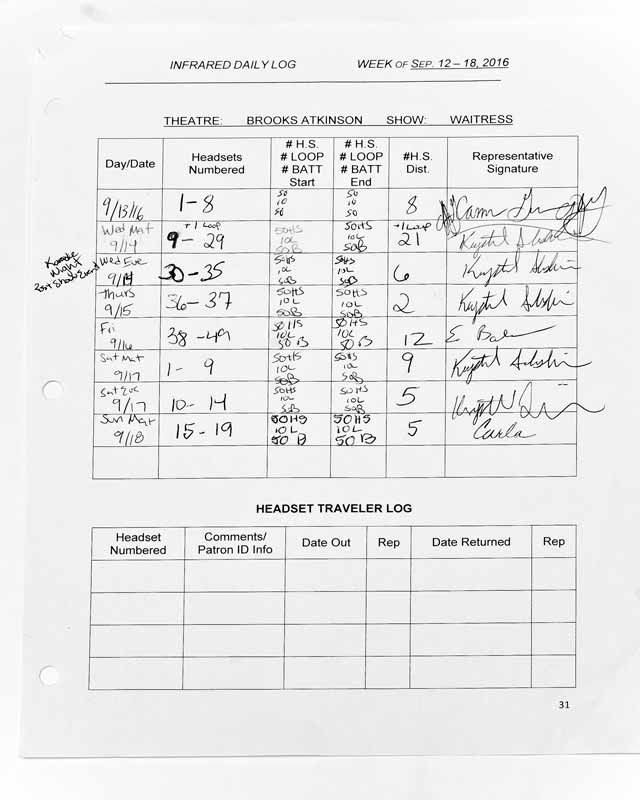 INFRARED DAILY LOG WEEK OF SEP. 12 – 18, 2016
THEATRE: BROOKS ATKINSON SHOW: WAITRESS
Day/Date Headsets Numbered # H.S. # LOOP # BATT Start # H.S. # LOOP # BATT End #H.S. Dist. Representative Signature
9/13/16 1-8 50 10 50 50 10 50 8
Wed Mat 9/14 9 - 29 +1 Loop 50HS 10L 50B 50HS 10L 50B +1 Loop 21 Krystal
Karaoke Night Post Show Event
Wed Eve 9/14 30-35 50HS 10L 50B 50HS 10L 50B 6 Krystal
Thurs 9/15 36-37 50HS 10L 50B 50HS 10L 50B 2 Krystal
Fri 9/16 38-49 50HS 10L 50B 50HS 10L 50B 12 E
Sat Mat 9/17 1-9 50HS 10L 50B 50HS 10L 50B 9 Krystal
Sat Eve 9/17 10-14 50HS 10L 50B 50HS 10L 50B 5 Krystal
Sun Mat 9/18 15-19 50HS 10L 50B 50HS 10L 50B 5 Carla
HEADSET TRAVELER LOG
Headset Numbered Comments/ Patron ID Info Date Out Rep Date Returned Rep
31